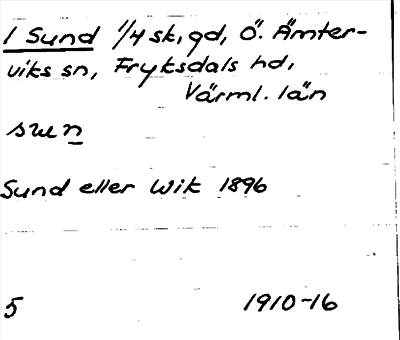 1 Sund 1/4 sk, gd, Ö. Ämter-
viks sn, Fryksdals hd,
Värml. län
sun
Sund eller Wik 1896
5 1910-16